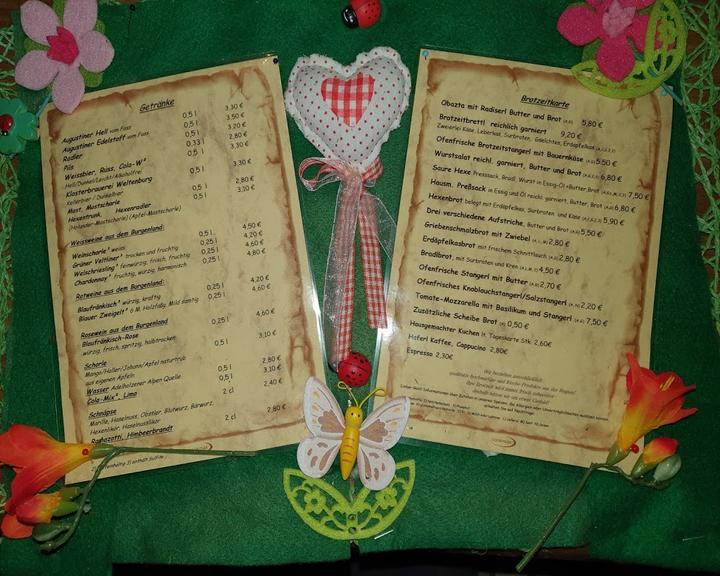 Getränke
Augustiner Hell vom Fass 0,5 l 3,30 €
Augustiner Edelstoff vom Fass 0,5 l 3,50 €
Radler 0,5 l 3,20 €
Pils 0,33 l 2,80 €
Weissbier, Russ, Cola-W⁴ 0,5 l 3,30 €
Hell/Dunkel/Leicht/Alkoholfrei
Klosterbrauerei Weltenburg 0,5 l 3,30 €
Kellerbier / Dunkelbier
Most, Mostschorle 0,5 l 2,80 €
Hexentrunk, Hexenradler 0,5 l 3,10 €
(Holunder-Mostschorle) (Apfel-Mostschorle)
Weissweine aus dem Burgenland:
Weinschorle³ weiss 0,5 l 4,50 €
Grüner Veltliner³ trocken und fruchtig 0,25 l 4,20 €
Welschriesling³ feinwürzig, frisch, fruchtig 0,25 l 4,60 €
Chardonnay³ fruchtig, würzig, harmonisch 0,25 l 4,60 €
Rotweine aus dem Burgenland:
Blaufränkisch³ würzig, kräftig 0,25 l 4,20 €
Blauer Zweigelt³ 6 M. Holzfaß, Mild samtig 0,25 l 4,60 €
Rosewein aus dem Burgenland
Blaufränkisch-Rose 0,25 l 4,60 €
würzig, frisch, spritzig, halbtrocken
Schorle 0,5 l 3,10 €
Mango/Holler/Johann/Apfel naturtrub
aus eigenen Äpfeln 0,5 l 2,80 €
Wasser Adelholzener Alpen Quelle 0,5 l 2,30 €
Cola-Mix⁴, Limo 0,5 l 2,40 €
Schnäpse
Marille, Haselnuss, Obstler, Blutwurz, Bärwurz, 2 cl
Hexenlikör, Haselnusslikör
Ramazotti, Himbeerbrandt 2 cl 2,80 €
Brotzeitkarte
Obazta mit Radiserl Butter und Brot 5,80 €
Brotzeitbrettl reichlich garniert 9,20 €
Zweierlei Käse, Leberkas, Surbraten, Gselchtes, Erdäpfelkas
Ofenfrische Brotzeitstangerl mit Bauernkäse 5,50 €
Wurstsalat reichl. garniert, Butter und Brot 6,80 €
Saure Hexe Pressack, Bradl, Wurst in Essig-Öl +Butter,Brot 7,50 €
Hausm. Preßsack in Essig und Öl reichl. garniert, Butter,Brot 6,80 €
Hexenbrot belegt mit Erdäpfelkas, Surbraten und Käse 5,90 €
Drei verschiedene Aufstriche, Butter und Brot 5,50 €
Griebenschmalzbrot mit Zwiebel 2,80 €
Erdäpfelkasbrot mit frischem Schnittlauch 2,80 €
Bradlbrot, mit Surbraten und Kren 4,50 €
Ofenfrische Stangerl mit Butter 2,70 €
Ofenfrisches Knoblauchstangerl/Salzstangerl 2,20 €
Tomate-Mozzarella mit Basilikum und Stangerl 7,50 €
Zusätzliche Scheibe Brot 0,50 €
Hausgemachter Kuchen lt. Tageskarte Stk. 2,60€
Haferl Kaffee, Cappucino 2,80€
Espresso 2,30€
Wir beziehen ausschließlich
qualitativ hochwertige und frische Produkte aus der Region!
Ihre Brotzeit wird immer frisch zubereitet
deshalb bitten wir um etwas Geduld!